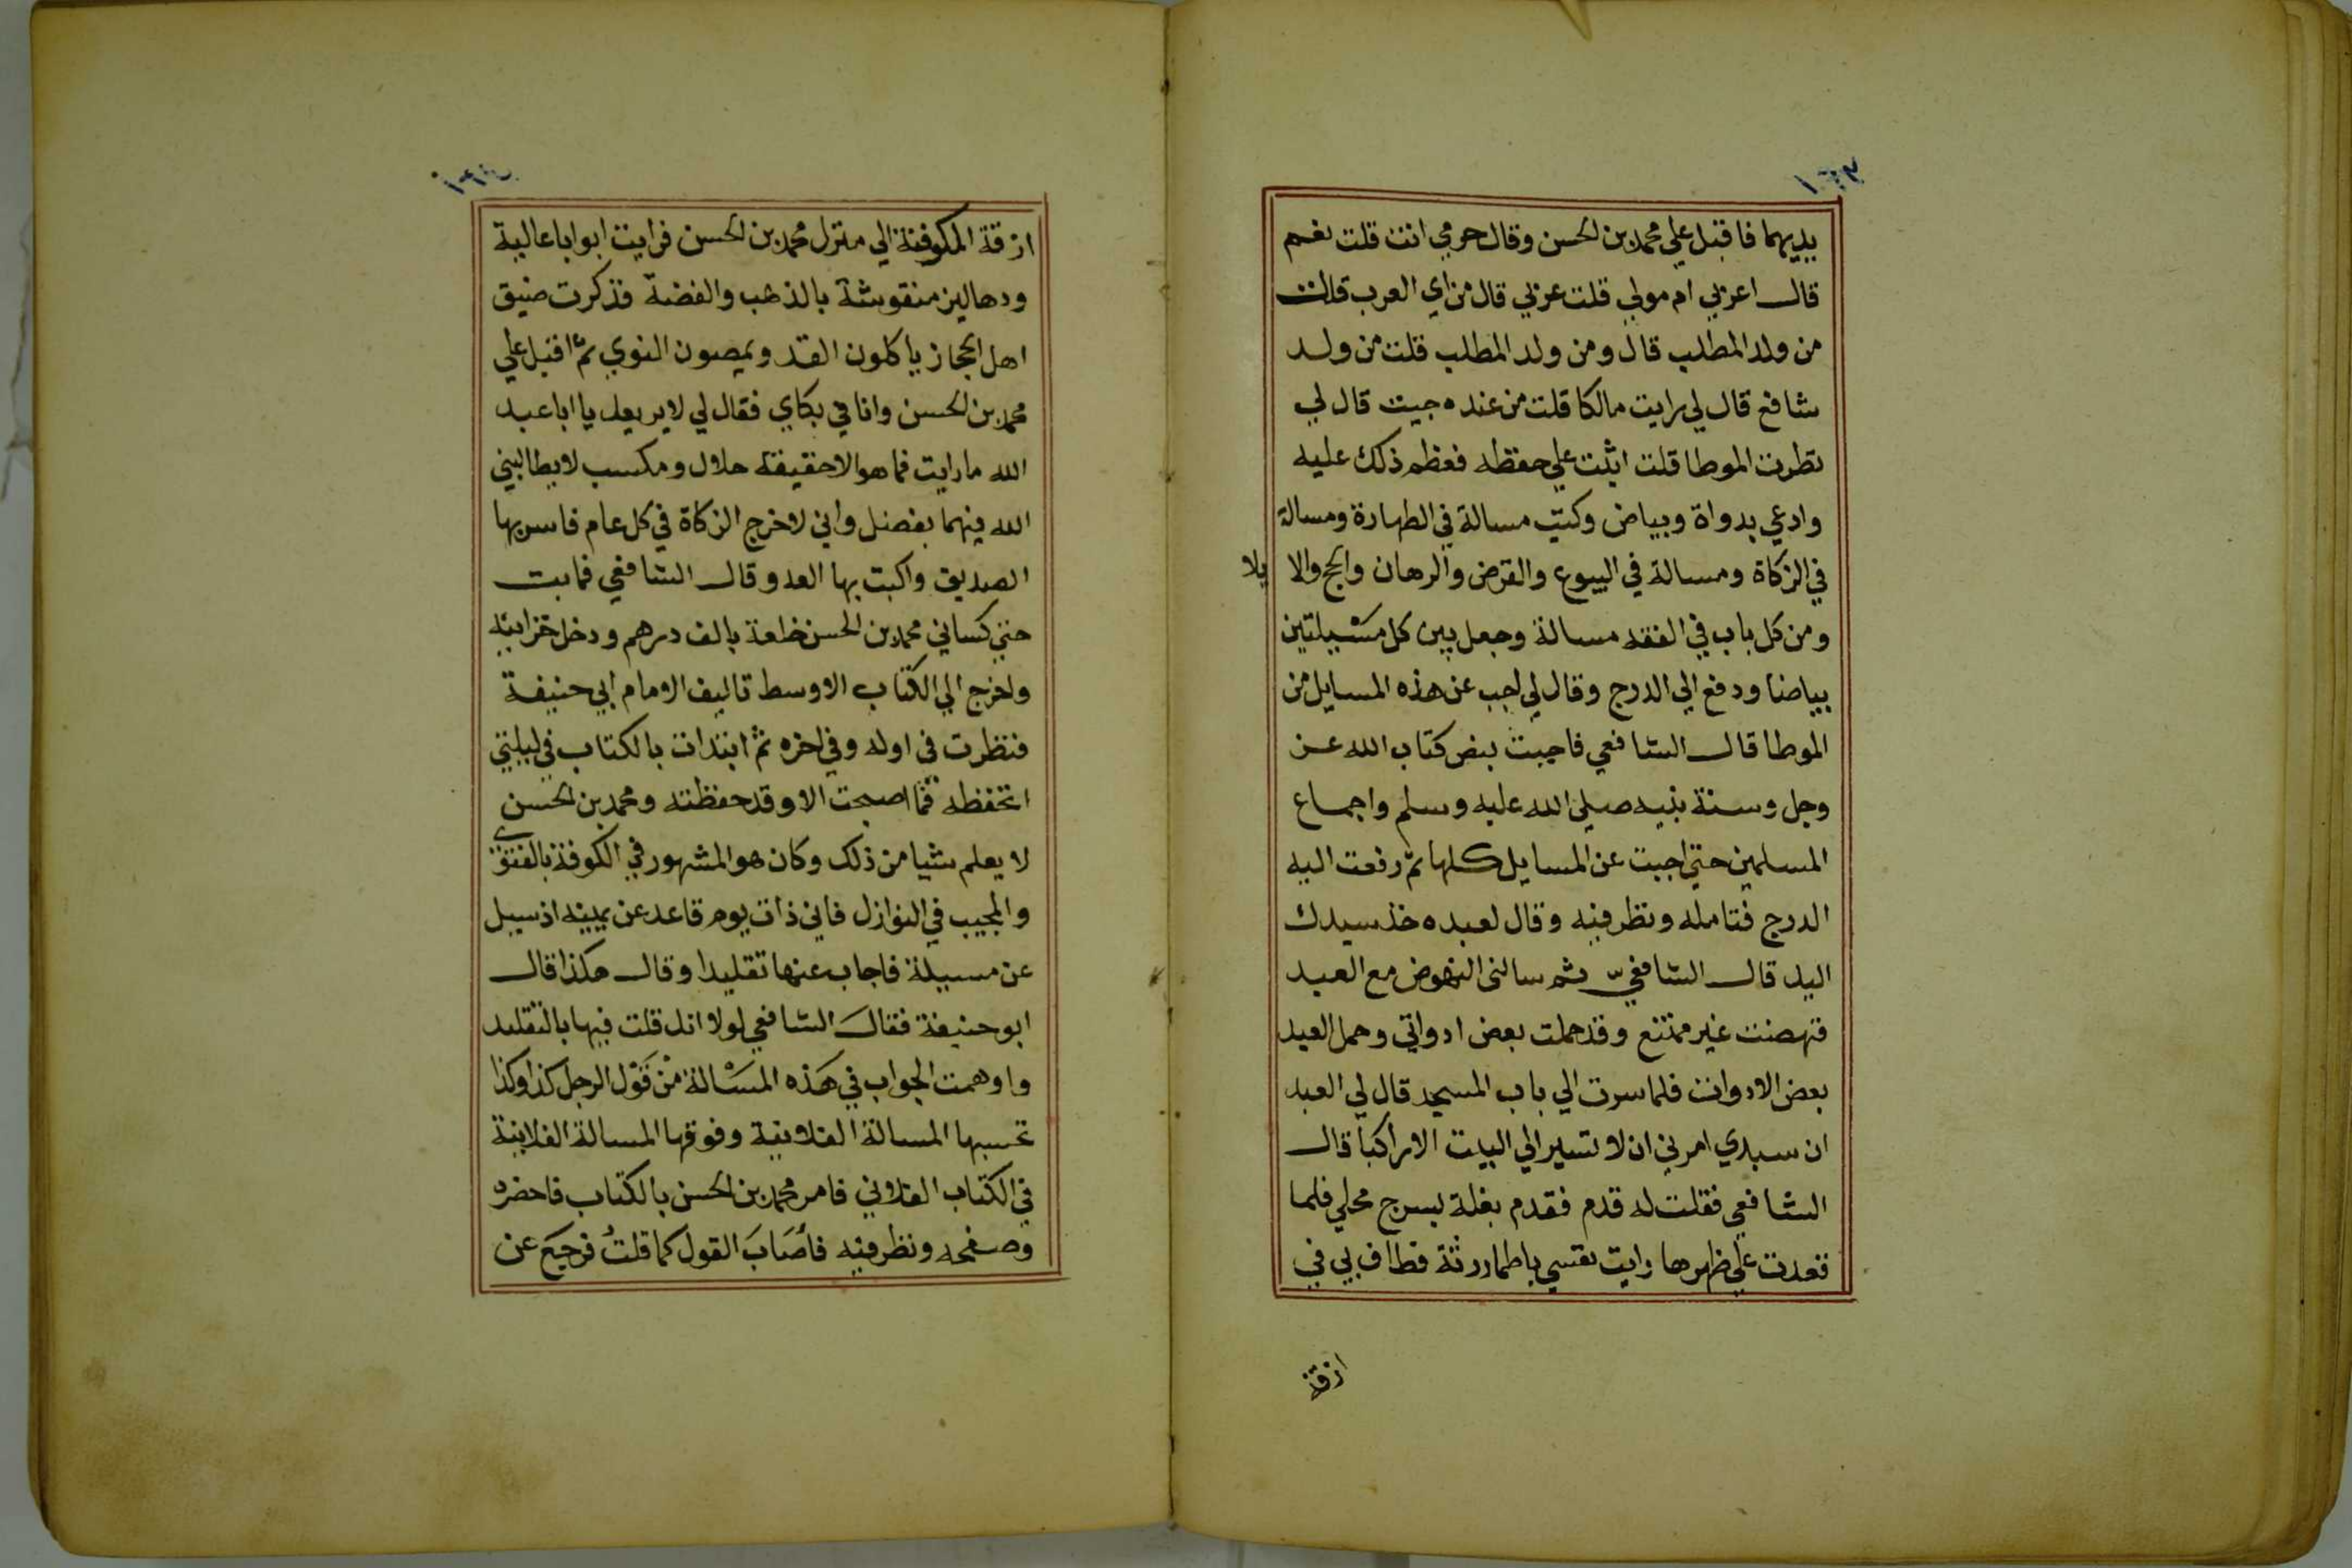 ١٦٣
يديهما فاقبل علي محمد بن الحسن وقال حرمي انت قلت نعم
قال اعربي ام مولي قلت عربي قال من اي العرب قلت
من ولد المطلب قال ومن ولد المطلب قلت من ولد
شافع قال لي رايت مالكا قلت من عنده جيت قال لي
نظرت الموطا قلت اتيت علي حفظه فعظم ذلك عليه
وادعي بدواة وبياض وكتب مسالة في الطهارة ومسالة
في الزكاة ومسالة في البيوع والقرض والرهان والحج والا
يلا
ومن كل باب في الفقه مسالة وجعل بين كل مسيلتين
بياضا ودفع الي الدرج وقال لي اجب عن هذه المسايل من
الموطا قال الشافعي فاجبت بنص كتاب الله عز
وجل وسنة نبيه صلي الله عليه وسلم واجماع
المسلمين حتي اجبت عن المسايل كلها ثم رفعت اليه
الدرج فتامله ونظر فيه وقال لعبده خذ سيدك
اليك قال الشافعي ثم سالني النهوض مع العبد
فنهضت غير ممتنع وقد حملت بعض ادواتي وحمل العبد
بعض الادوات فلما سرت الي باب المسجد قال لي العبد
ان سيدي امرني ان لا تسير الي البيت الا راكبا قال
الشافعي فقلت له قدم فقدم بغلة بسرج محلي فلما
قعدت علي ظهرها رايت نفسي باطمار رثة فطاف بي في
ازقة
١٦٤
ازقة الكوفة الي منزل محمد بن الحسن فرايت ابوابا عالية
ودهاليز منقوشة بالذهب والفضة فذكرت ضيق
اهل الحجاز ياكلون القد ويمصون النوي ثم اقبل علي
محمد بن الحسن وانا في بكاي فقال لي لا يريعك يا ابا عبد
الله ما رايت فما هو الا حقيقة حلال ومكسب لا يطالبني
الله فيهما بفضل واني لاخرج الزكاة في كل عام فاسر بها
الصديق واكبت بها العدو قال الشافعي فما بت
حتي كساني محمد بن الحسن خلعة بالف درهم ودخل خزانته
واخرج الي الكتاب الاوسط تاليف الامام ابي حنيفة
فنظرت في اوله وفي اخره ثم ابتدات بالكتاب في ليلتي
اتحفظه فما اصبحت الا وقد حفظته ومحمد بن الحسن
لا يعلم شيا من ذلك وكان هو المشهور في الكوفة بالفتوي
والمجيب في النوازل فاني ذات يوم قاعد عن يمينه اذ سيل
عن مسيلة فاجاب عنها تقليدا وقال هكذا قال
ابو حنيفة فقالَ الشافعي لولا انك قلت فيها بالتقليد
واوهمت الجواب في هَذه المسَالة مِنْ قَوْل الرجل كذا وكذا
تحسبها المسالة الفلانية وفوقها المسالة الفلانية
في الكتاب الفلاني فامر محمد بن الحسن بالكتاب فاحضره
وصفحه ونظر فيه فأصَابَ القول كما قلتُ فرجع عن